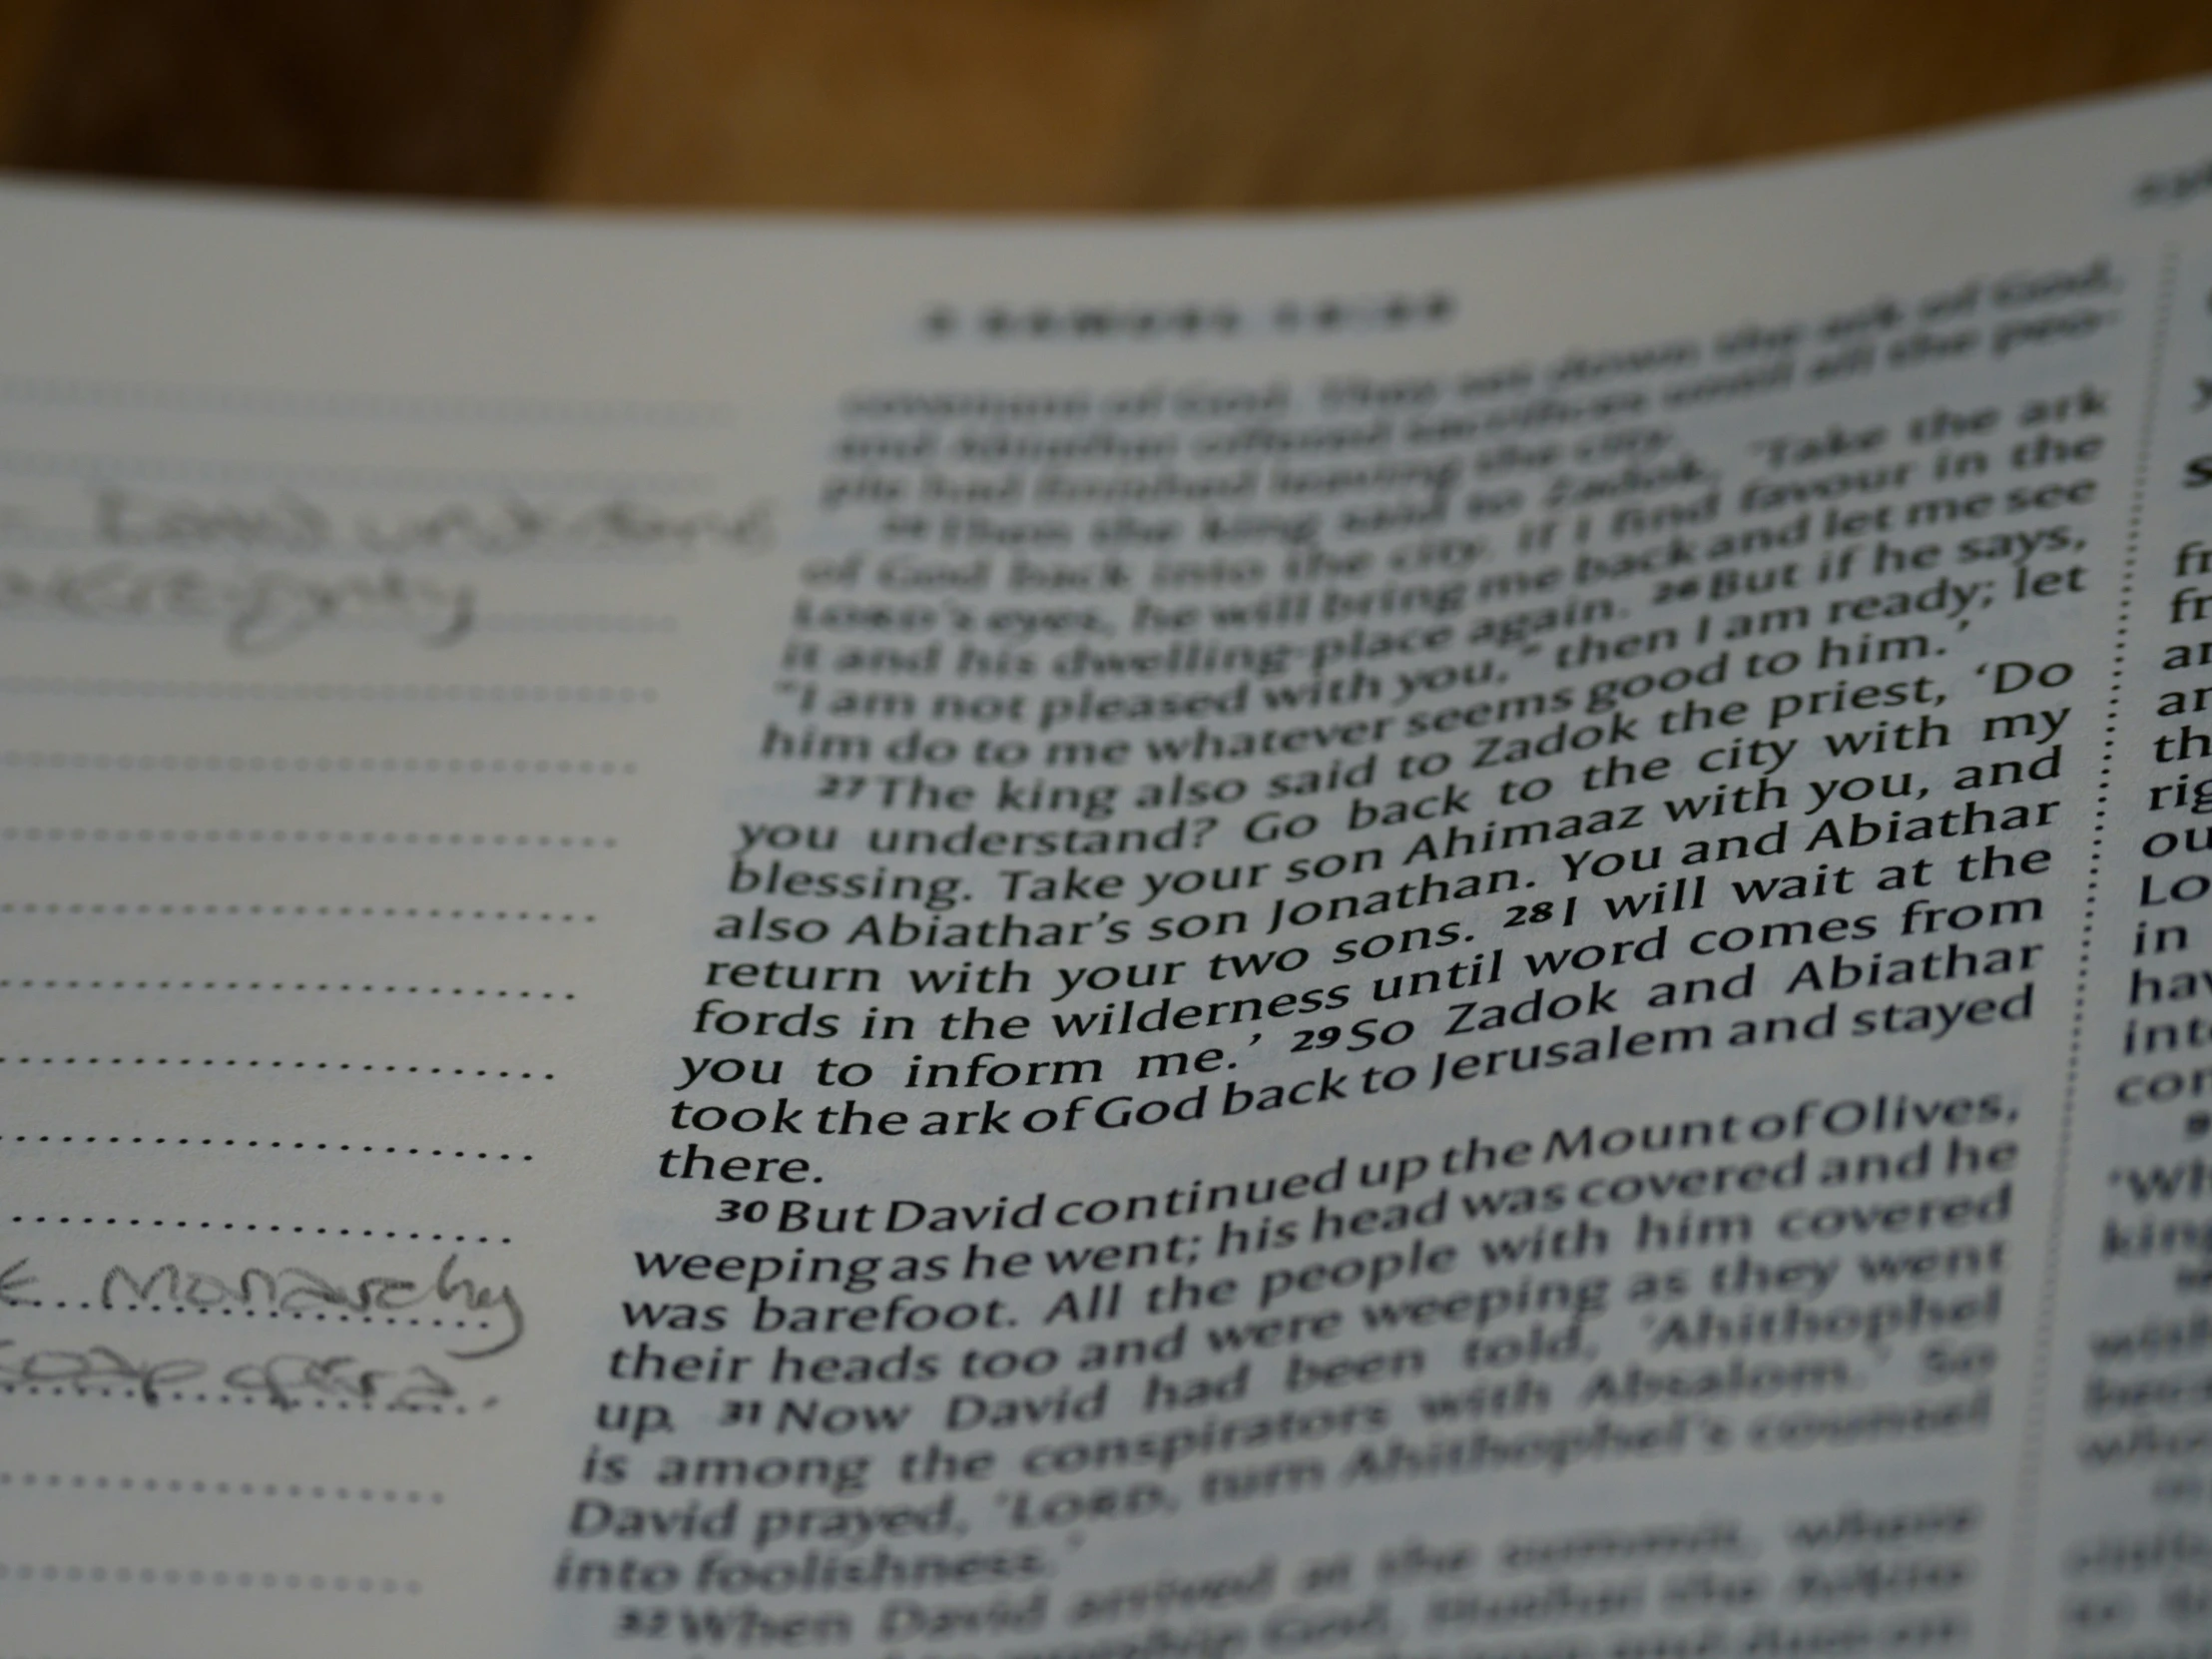 sovereignty
covenant of God. They set down the ark of God,
and Abiathar offered sacrifices until all the peo-
ple had finished leaving the city.
25 Then the king said to Zadok, ‘Take the ark
of God back into the city. If I find favour in the
LORD’s eyes, he will bring me back and let me see
it and his dwelling-place again. 26 But if he says,
“I am not pleased with you,” then I am ready; let
him do to me whatever seems good to him.’
27 The king also said to Zadok the priest, ‘Do
you understand? Go back to the city with my
blessing. Take your son Ahimaaz with you, and
also Abiathar’s son Jonathan. You and Abiathar
return with your two sons. 28 I will wait at the
fords in the wilderness until word comes from
you to inform me.’ 29 So Zadok and Abiathar
took the ark of God back to Jerusalem and stayed
there.
30 But David continued up the Mount of Olives,
weeping as he went; his head was covered and he
was barefoot. All the people with him covered
their heads too and were weeping as they went
up. 31 Now David had been told, ‘Ahithophel
is among the conspirators with Absalom.’ So
David prayed, ‘LORD, turn Ahithophel’s counsel
into foolishness.’
32 When David arrived at the summit, where
Monarchy
soap opera.